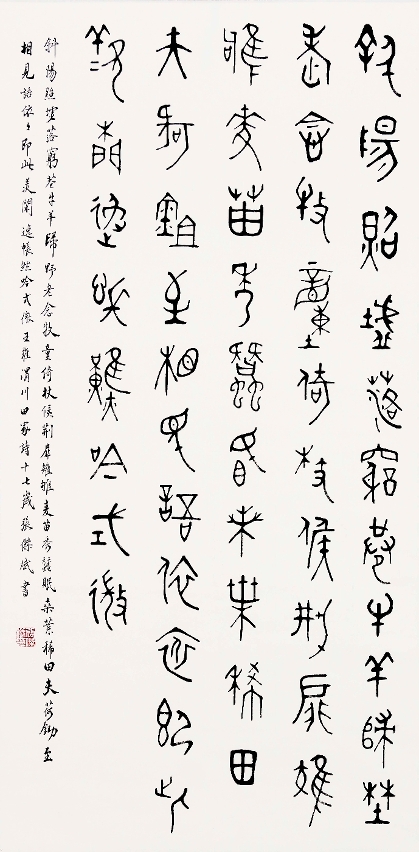 斜陽照墟落窮巷牛羊歸野
老念牧童倚杖候荊扉雉
雊麥苗秀蠶眠桑葉稀田
夫荷鉏至相見語依依即此
羨閑逸悵然吟式微
斜陽照墟落窮巷牛羊歸野老念牧童倚杖候荊扉雉雊麥苗秀蠶眠桑葉稀田夫荷鋤至
相見語依々即此羨閑逸悵然吟式微王維渭川田家詩十七歲張傑書